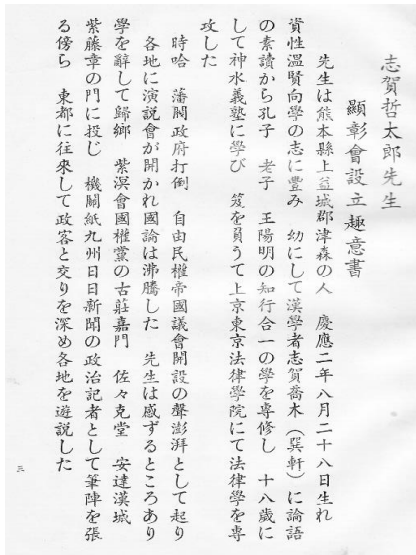 志賀哲太郎先生
顯彰會設立趣意書
先生は熊本縣上益城郡津森の人　慶應二年八月二十八日生れ
資性温賢向學の志に豐み　幼にして漢學者志賀喬木（巽軒）に論語
の素讀から孔子　老子　王陽明の知行合一の學を専修し　十八歳に
して神水義塾に學び　笈を負うて上京東京法律學院にて法律學を専
攻した
時哈　藩閥政府打倒　自由民權帝國議會開設の聲澎湃として起り
各地に演説會が開かれ國論は沸騰した　先生は感ずるところあり
學を辭して歸鄉　紫溟會國權黨の古莊嘉門　佐々克堂　安達漢城
紫藤章の門に投じ　機關紙九州日日新聞の政治記者として筆陣を張
る傍ら　東都に往來して政客と交りを深め各地を遊説した
三